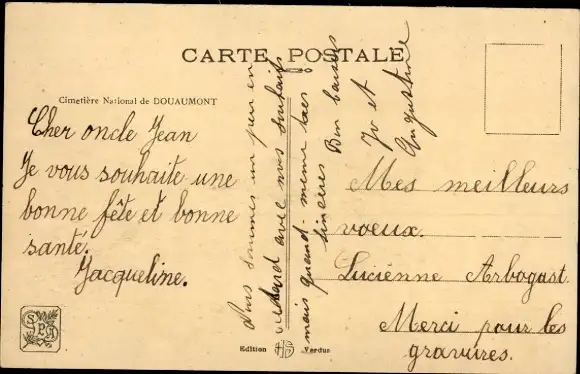 CARTE POSTALE
Cimetière National de DOUAUMONT
Cher oncle Jean
Je vous souhaite une
bonne fête et bonne
santé.
Jacqueline.
Nous sommes un peu en
retard avec nos souhaits
mais quand-même très
sincères Bon baisers
Jv et
Augustine
Mes meilleurs
voeux.
Luciènne Arbogast.
Merci pour les
gravures.
Edition Verdus